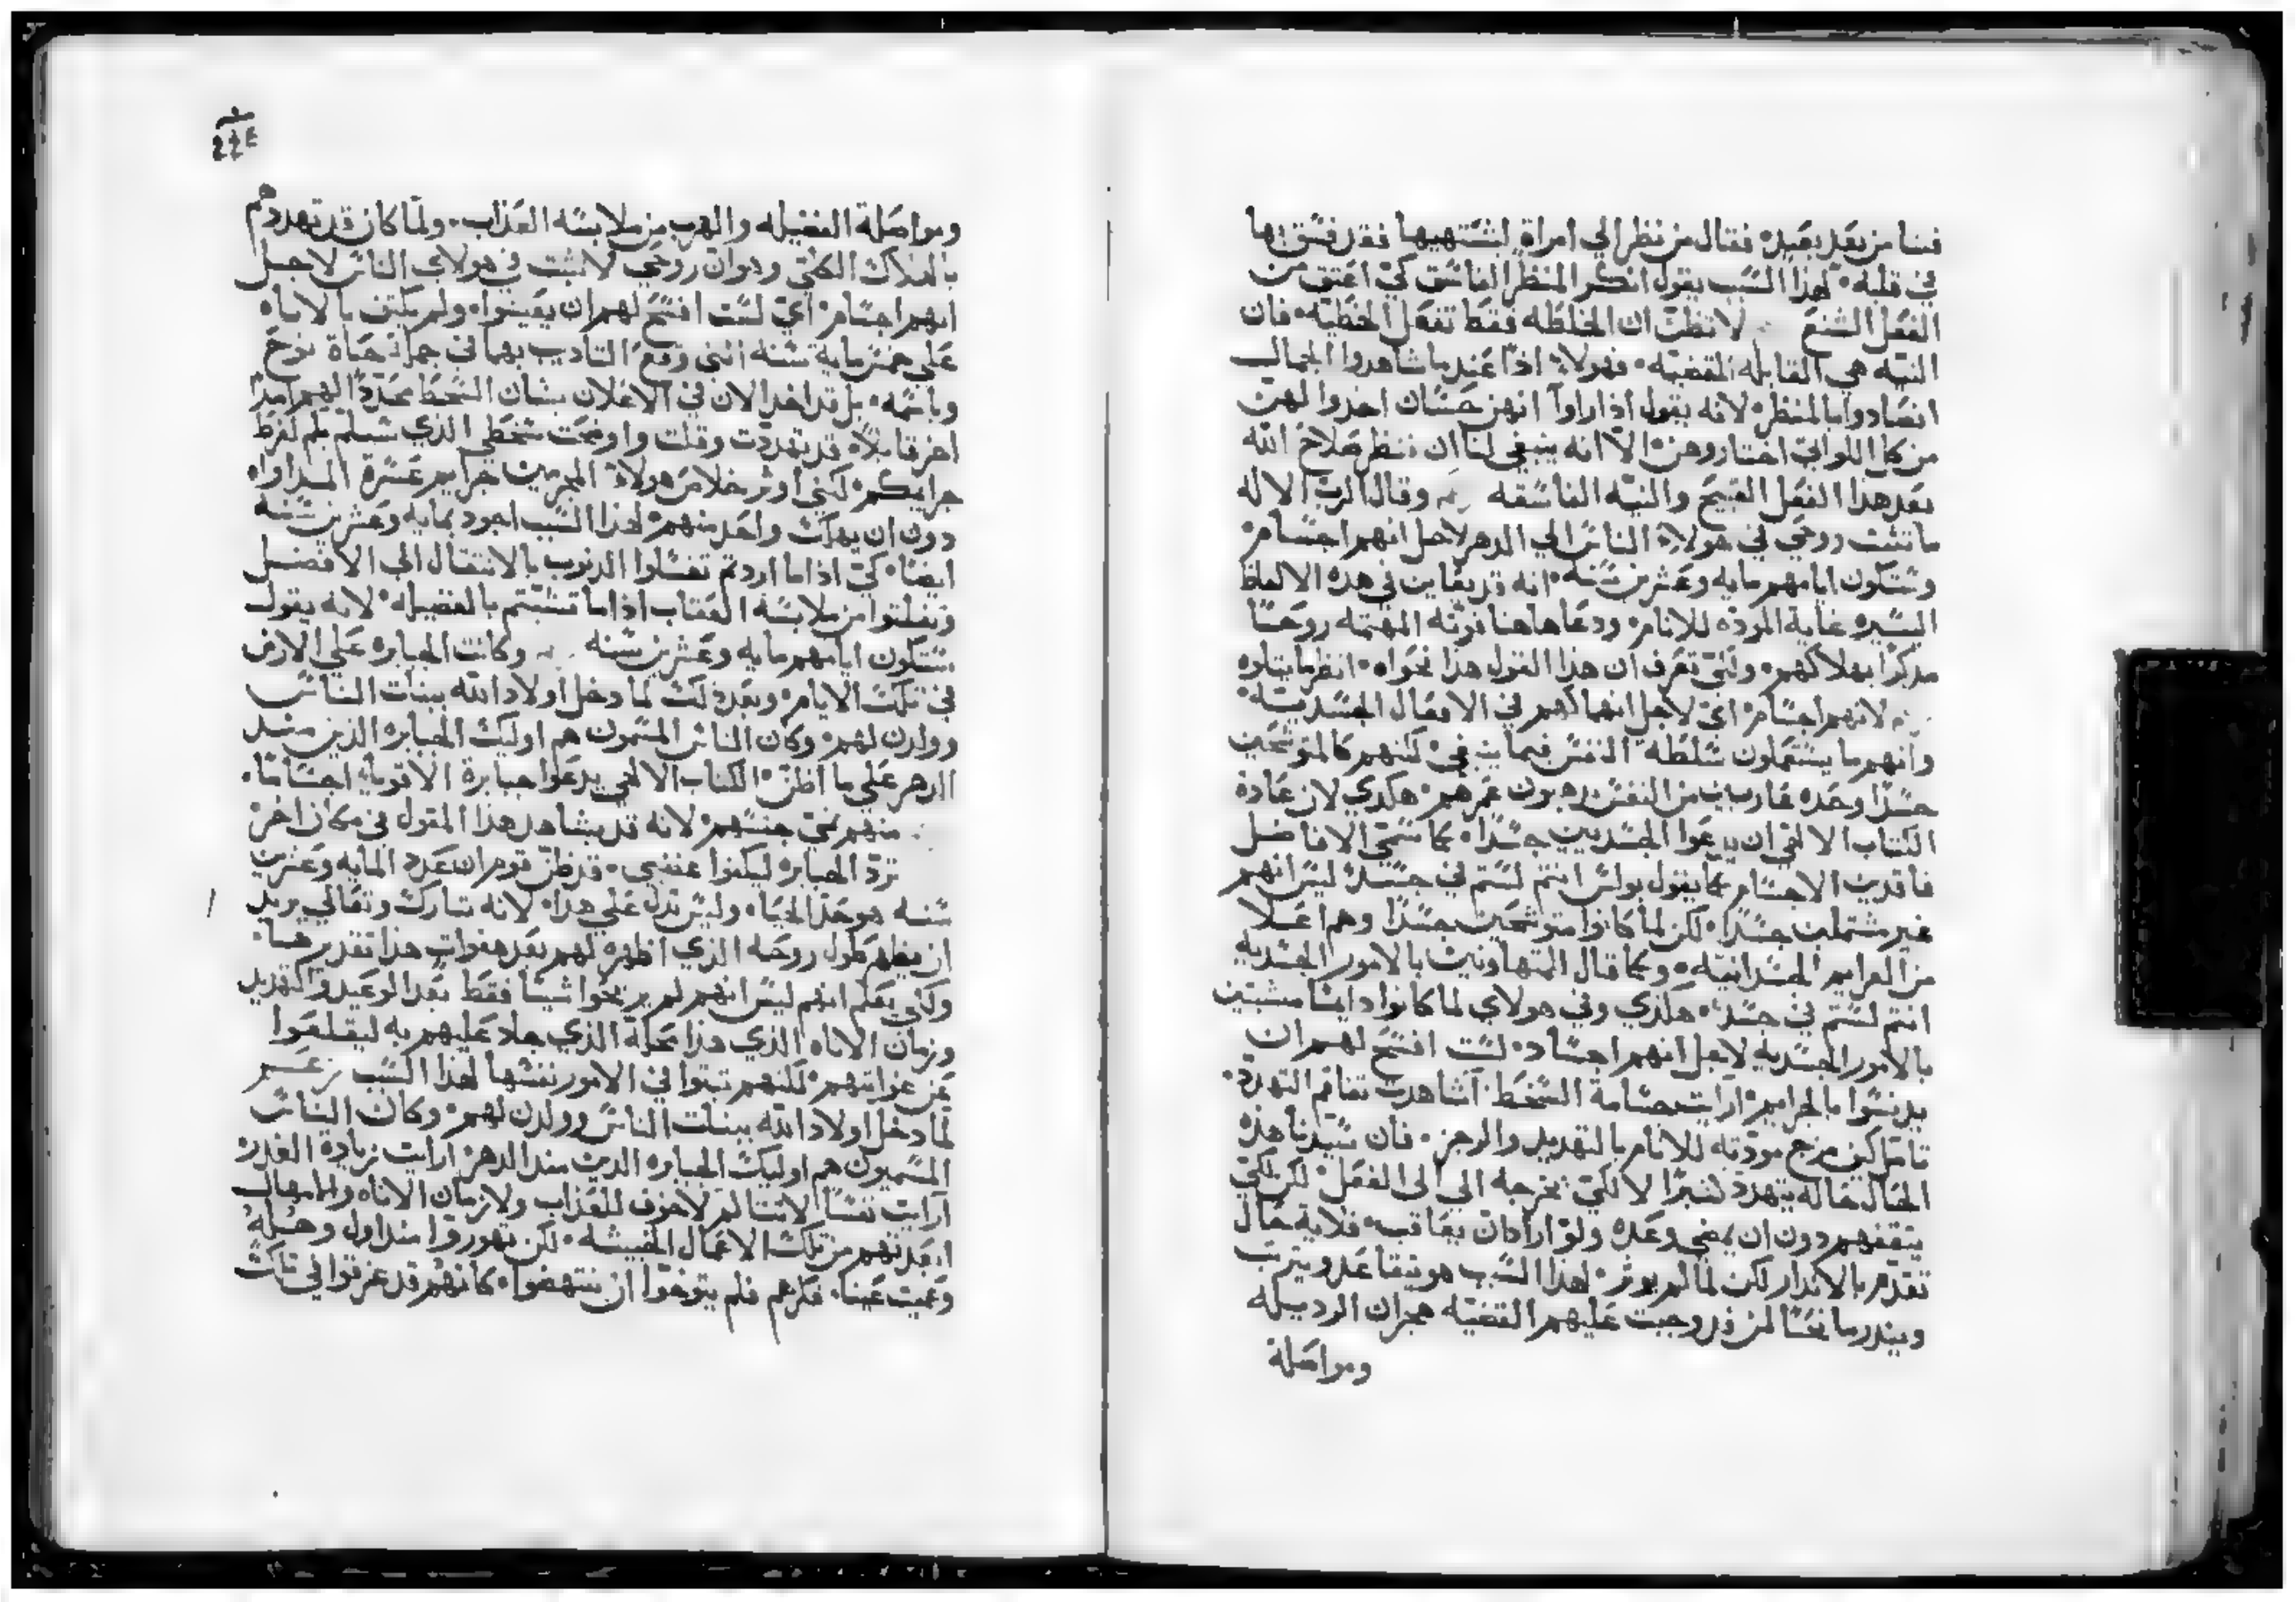 فسا من بعد بعيد، فقال من نظر الي امراة ليشتهيها فقد فسق بها
في قلبه، لهذا السبب يقول انكر المنظر الفاسق كي اعتق من
الفعل الشنع لا تظن ان الخلطه فقط تفعل الخطيه، فان
النيه هي القابله القضيه، فهولاء اذا عند ما شاهدوا الجمال
انصادوا بالمنظر، لانه يقول اذ اراوا انهن حسان اخدوا لهن
من كل اللواتي اختاروهن، الا انه ينبغي لنا ان ننظر صلاح الله
بعد هذا الفعل القبيح والنيه الفاسقه وقال الرب الاله
ما تثبت روحي في هولاء الناس الي الدهر لاجل انهم اجسام
وستكون ايامهم مايه وعشرين سنه، انه قد يعاين في هده الالفاظ
اليسيره غاية الموده للانام، ودعا هاهنا قوته المهتمه روحًا
مدكرًا بهلاكهم، ولكي تعرف ان هذا القول هذا نحواه، انظر ما يتلوه
لانهم اجسام اي لاجل انهماكهم في الافعال الجسديه
وانهم ما يستعملون سلطة النفس فيما ينبغي، لكنهم كالمتوشحين
جسدًا وحده عاربين من النفس يدهبون عمرهم، هكدي لان عادة
الكتاب الالهي ان يدعوا الجسديين جسدًا، كما سمي الافاضل
فاقدين الاجسام كما يقول بولس انتم لستم في جسد، ليس انهم
غير مشتملين جسدًا، لكن لما كانوا متوشحين جسدًا وهم اعلا
من العزايم الجسدانيه، وكما قال المتهاونين بالامور الجسديه
انتم لستم في جسد، هكدي وفي هولاي لما كانوا دايمًا مشبتين
بالامور الجسديه لاجل انهم اجساد، لست افسح لهم ان
يدنسوا بالجرايم، ارايت جسامة السخط، اشاهدت تفاقم التهدد،
تامل كيف مزج مودته للانام بالتهديد والرجز، فان سيدنا هذه
الحال حاله يتهدد كثيرًا لا لكي يخرجه الي الفعل، لكن لكي
يثقفهم دون ان يمضي وعده ولو اراد ان يعاقب، فلاية حال
تقدم بالاندار لكن لما لم يوثر، لهذا السبب هو يتقاعد ويترتب
ويندر ما نحسا لمن قد وجبت عليهم القضيه هجران الرديله
ومواصلة
ومواصلة الفضيله والهرب من ملابسة العذاب، ولما كان قد تهددهم
بالهلاك الكلي وهو ان روحي لا تثبت في هولاي الناس لاجل
انهم اجسام، اي لست افسح لهم ان يعيشوا، ولم يكتف بالاناه
علي خمسمايه سنه التي وقع التاديب بها في جملة حياة نوح
وباسمه، بل قد اخد الان في الاعلان بشان السخط محددًا لهم امدًا
اخر قايلًا، قد تهددت وقلت واوضحت سخطي الذي سيلم بكم لفرط
جرايمكم، لكنني اوثر خلاص هولاء المجرمين جرايم عسرة المداواه
دون ان يهلك واحد منهم، لهذا السبب اجود بمايه وعشرين سنه
ايضًا، كي اذا ما اردتم تغسلوا الدنوب بالانتقال الي الافضل
وتفلتوا من ملابسة العقاب اذا ما تشبتم بالفضيله، لانه يقول
ستكون ايامهم مايه وعشرين سنه وكانت الجبابره علي الارض
في تلك الايام، وبعد ذلك لما دخل اولاد الله ببنات الناس
وولدن لهم، وكان الناس المسمون هم اوليك الجبابره الذين مند
الدهر علي ما اظن، الكتاب الالهي يدعوا جبابرة الاقويا، اجسامًا،
منهم نمي جنسهم، لانه قد يشاهد هذا المقول في مكان اخر
ترد الجبابره ليكفوا غضبي، قد ظن قوم ان عدد المايه وعشرين
سنه هو حد الحياه، وليس تدل علي هدا، لانه تبارك وتعالي يريد
ان يظهر طول روحه الذي اظهره لهم بعد هفوات هذا تقديرها،
ولكي يعلم انهم ليس انهم لم يربحوا شيئًا فقط بعد الوعيد والتهديد
وزمان الاناه الذي هذا محله الذي جاد عليهم به ليقلعوا
عن غوايتهم، لكنهم ثبتوا في الامور نفسها لهذا السبب زعم
لما دخل اولاد الله ببنات الناس وولدن لهم، وكان الناس
المسميون هم اوليك الجبابره الدين مند الدهر، ارايت زيادة الغدر
ارايت نفسًا لا تتالم، لا خوف للعذاب ولا زمان الاناه والامهال
ابعدتهم من تلك الاعمال الخبيثه، لكن تهوروا مند اول وهله
وعميت عينا، فكرهم فلم يتوخوا ان ينتهضوا، كانهم قد غرقوا في تلك